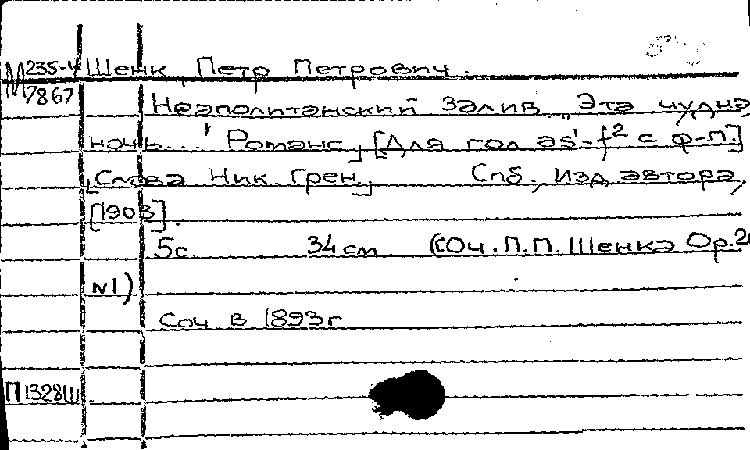 М235-4 Шенк, Петр Петрович.
7867
Неаполитанский залив. „Эта чудна
ночь..." Романс, [Для гол. as'-f² с ф-п.]
[Слова Ник. Грен.] Спб., изд. автора,
[1903].
5с. 34 см (Соч. П.П. Шенка Ор. 2
№1)
Соч. в 1893 г.
П 1328Ш